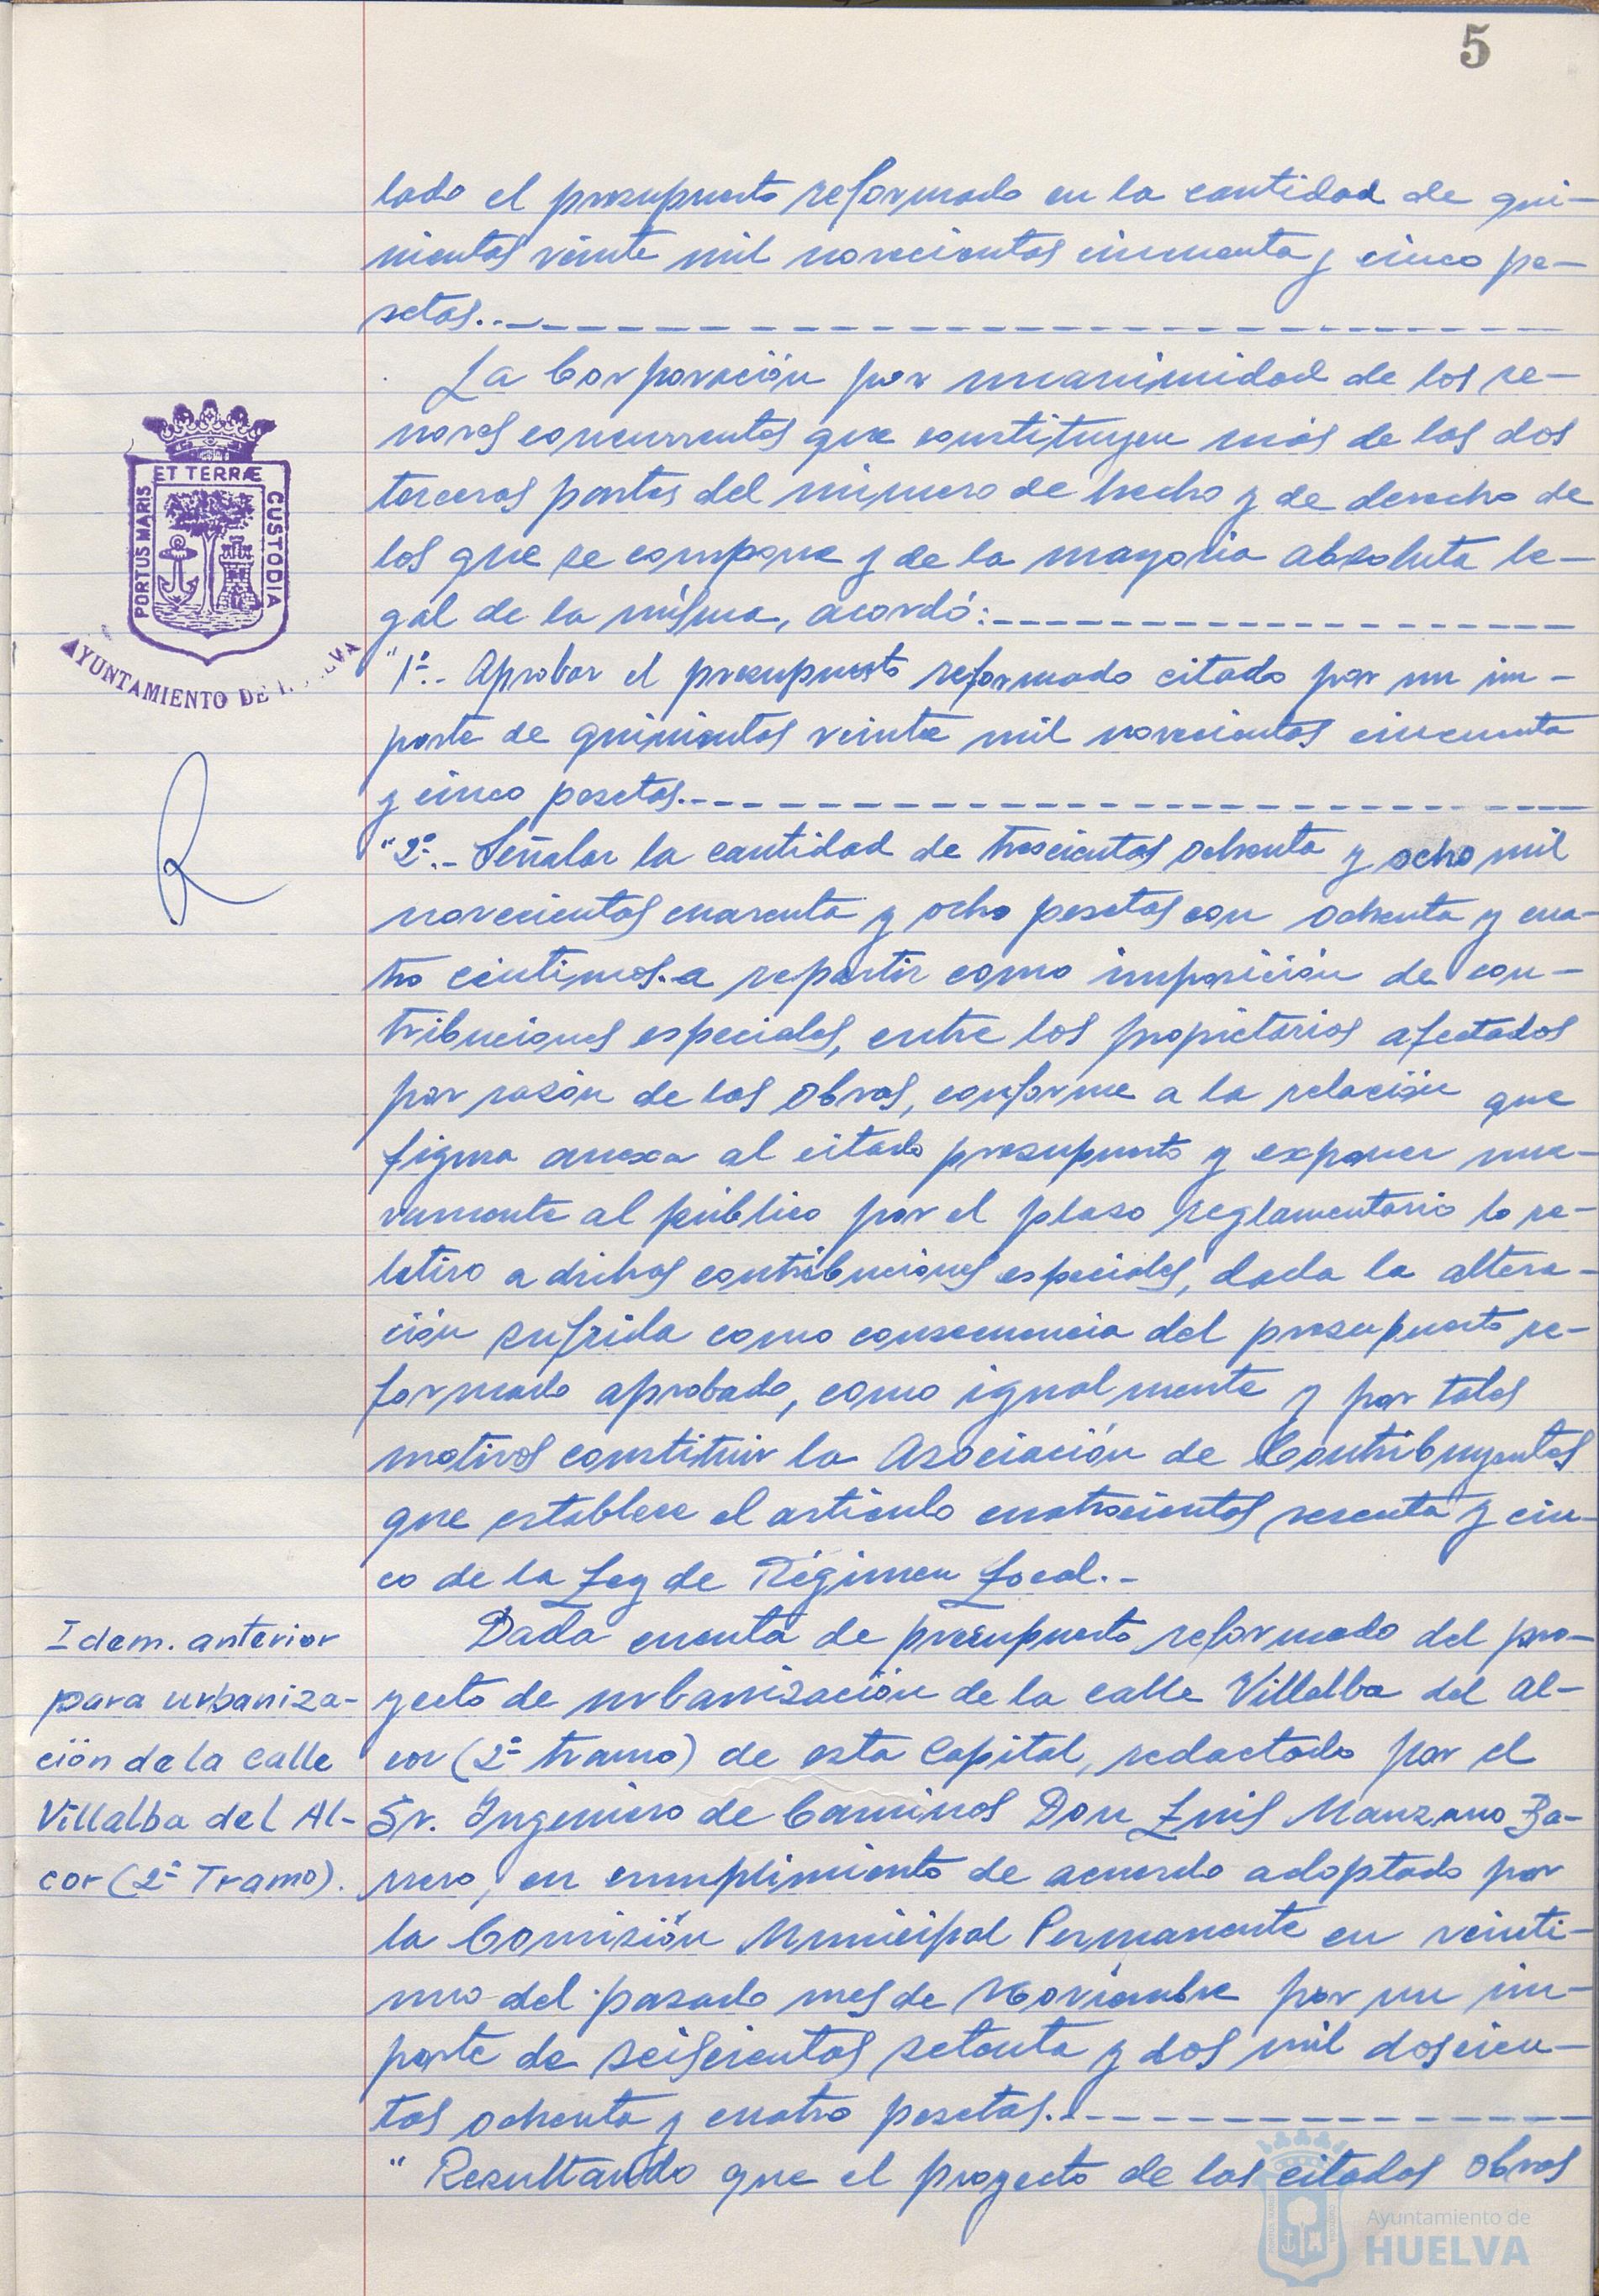 5
lado el presupuesto reformado en la cantidad de qui-
nientas veinte mil novecientas cincuenta y cinco pe-
setas.
La Corporación por unanimidad de los se-
nores concurrentes que constituyen más de las dos
terceras partes del número de hecho y de derecho de
los que se compone y de la mayoria absoluta le-
gal de la misma, acordó:
"1º.- Aprobar el presupuesto reformado citado por un im-
porte de quinientas veinte mil novecientas cincuenta
y cinco pesetas.
"2º.- Señalar la cantidad de trescientas ochenta y ocho mil
novecientas cuarenta y ocho pesetas con ochenta y cua-
tro céntimos. a repartir como imposición de con-
tribuciones especiales, entre los propietarios afectados
por razón de las obras, conforme a la relación que
figura anexa al citado presupuesto y exponer nue-
vamente al público por el plazo reglamentario lo re-
lativo a dichas contribuciones especiales, dada la altera-
ción sufrida como consecuencia del presupuesto re-
formado aprobado, como igualmente y por tales
motivos constituir la Asociación de Contribuyentes
que establece el artículo cuatrocientos sesenta y cin-
co de la Ley de Régimen Local.-
Dada cuenta de presupuesto reformado del pro-
yecto de urbanización de la calle Villalba del Al-
cor (2º tramo) de esta Capital, redactado por el
Sr. Ingeniero de Caminos Don Luis Manzano
en cumplimiento de acuerdo adoptado por
la Comisión Municipal Permanente en veinti-
uno del pasado mes de Noviembre por un im-
porte de seiscientas setenta y dos mil doscien-
tas ochenta y cuatro pesetas.
" Resultando que el proyecto de las citadas obras
Idem. anterior
para urbaniza-
ción de la calle
Villalba del Al-
cor (2º Tramo).
PORTUS MARIS
ET TERRÆ
CUSTODIA
AYUNTAMIENTO DE
R
Ayuntamiento de
HUELVA